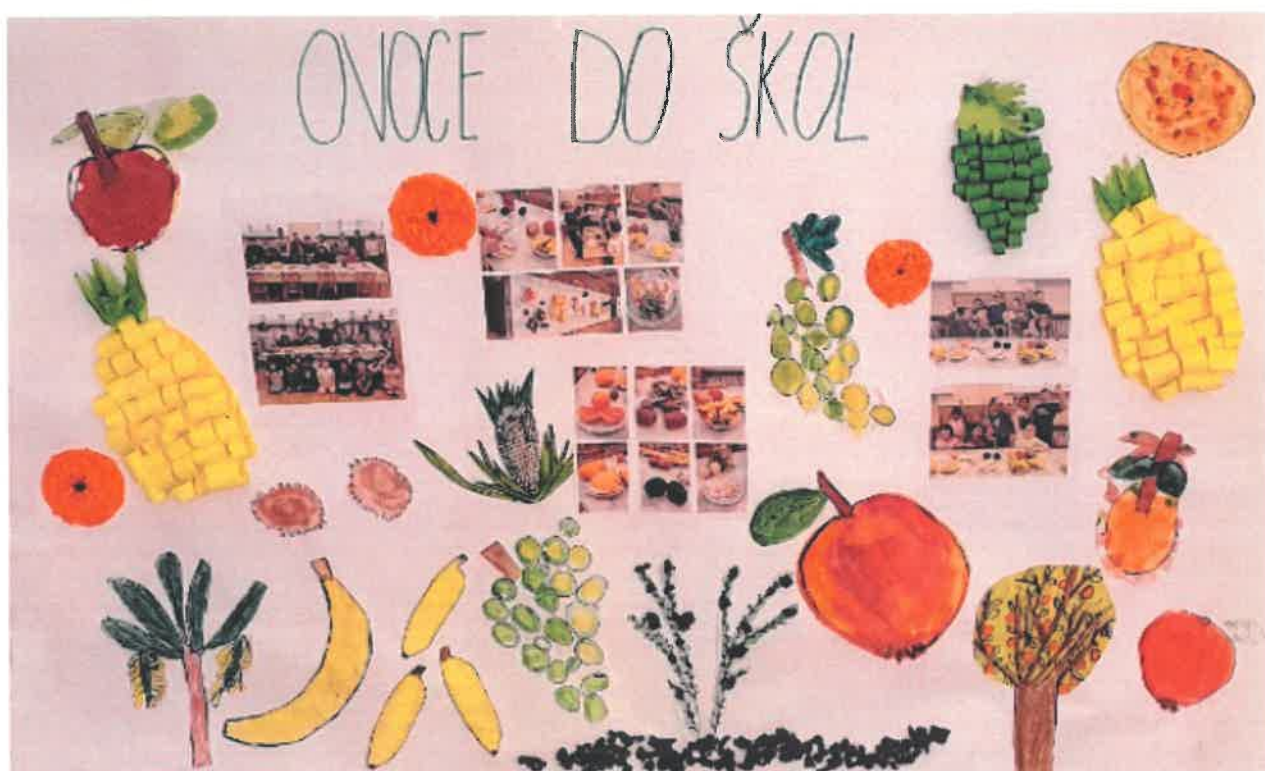 OVOCE DO ŠKOL